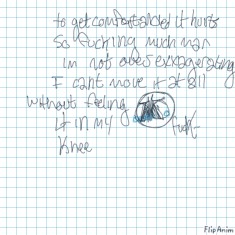 to get comfortable it hurts
So fucking much man
im not over exxagerating
I cant move it at all
without feeling
it in my
knee
FlipAnim